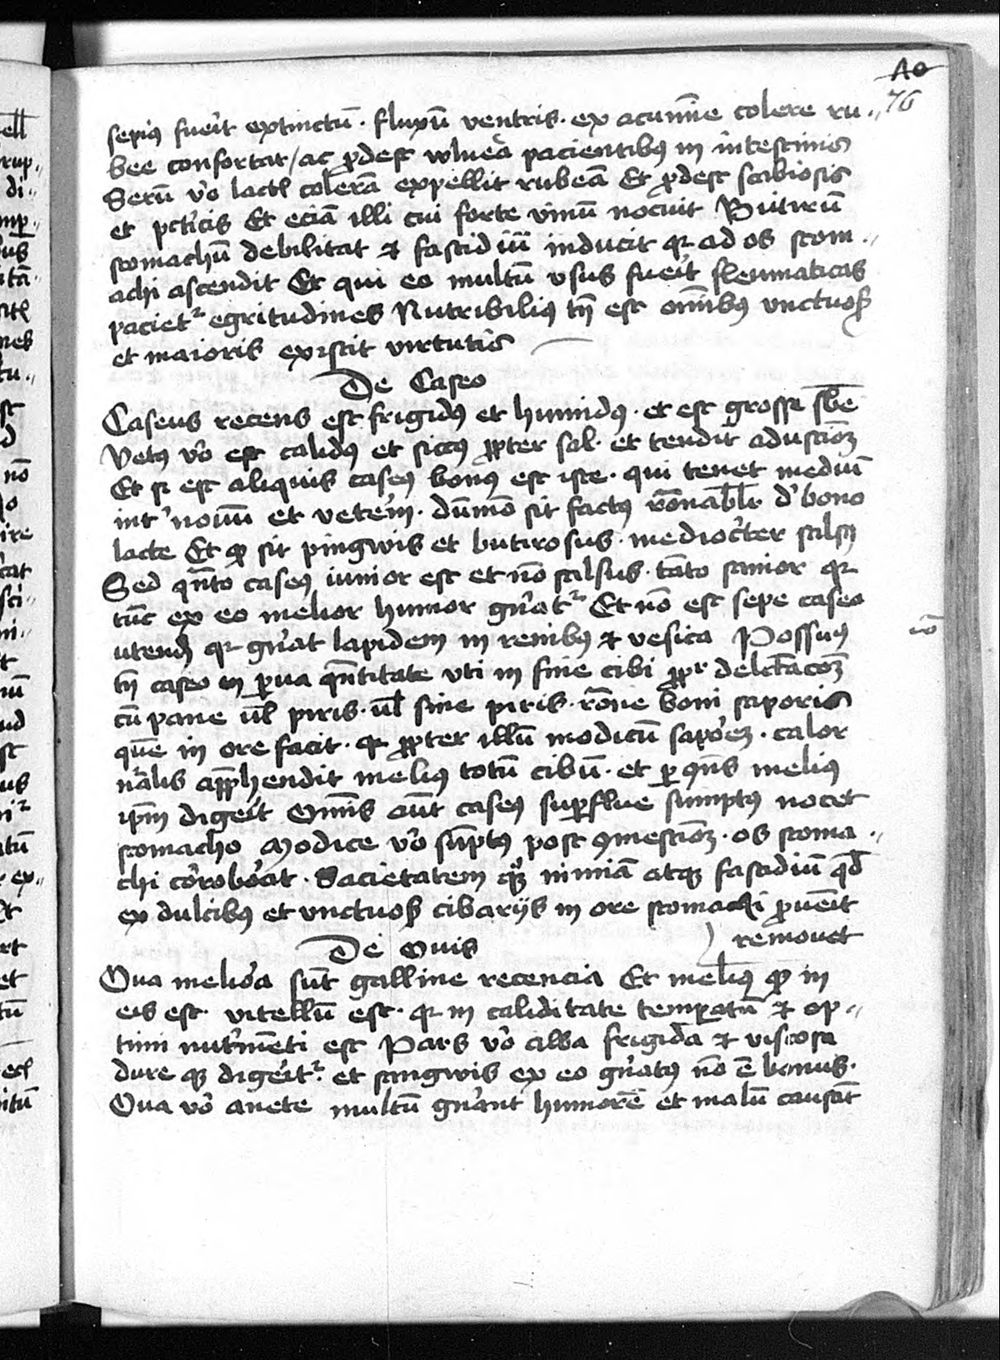 A0
76
sepiꝰ fuerit extinctū · fluxū ventris · ex acumīe colere ru-
bee confortat / ac ꝓdest vlcera pacientibꝰ in intestinis
Serū vo lactꝭ colerā expellit rubeā Et ꝓdest scabiosis
et Et eciā illi cui forte vinū nocuit Butirū
stomachū debilitat ⁊ fastidiū inducit qꝛ ad os stom-
achi ascendit Et qui eo multū vsus fuerit fleumaticas
pacietᷣ egritudines Nutribiliꝰ tn̄ est om̄ibꝰ vnctuosꝭ
et maioris existit virtutis
De Caseo
Caseus recens est frigidꝰ et humidꝰ · et est grosse sb̄e
Vetꝰ vo est calidꝰ et siccꝰ ꝓpter sal · et tendit adustiōꝫ
Et si est aliquis caseꝰ bonꝰ est iste · qui tenet mediū
int' nouū et vetem̄ · dūmō sit factꝰ rōnabilr d' bono
lacte Et ꝙ sit pingwis et butirosus · mediocr̄ter salsꝰ
Sed qn̄to caseꝰ iunior est et nō salsus · tāto sanior qꝛ
tūc ex eo melior humor gn̄atᷣ Et nō est sepe caseo
utendū qꝛ gn̄at lapidem in renibꝰ ⁊ vesica Possumꝰ
tn̄ caseo in ꝑua qn̄titate vti in fine cibi ꝓpr delectacōꝫ
cū pane ul̄ piris · ul̄ sine piris · rōne boni saporis
quē in ore facit · qꝛ ꝓpter illū modicū saporeꝫ · calor
nālis app̄hendit meliꝰ totū cibū · et ꝑ qn̄s meliꝰ
ip̄m digerit Om̄is aūt caseꝰ suꝑflue sumptꝰ nocet
stomacho Modice vo sūptꝰ post ꝯmestiōꝫ · os stoma-
chi corroborat · Sacietatem nimiā atqꝫ fastidiū qd̄
ex dulcibꝰ et vnctuosꝭ cibarijs in ore stomachi ꝓuenit
removet
De Ovis
Oua meliora sūt galline recencia Et meliꝰ ꝙ in
eis est · vitellū est · qꝛ in caliditate temperatū ⁊ op-
timi nutrimēti est Pars vo alba frigida ⁊ viscosa
dure qꝫ digeritᷣ · et sangwis ex eo gn̄atꝰ nō ē bonus ·
Oua vo anete multū gn̄ant humorē et malū causāt